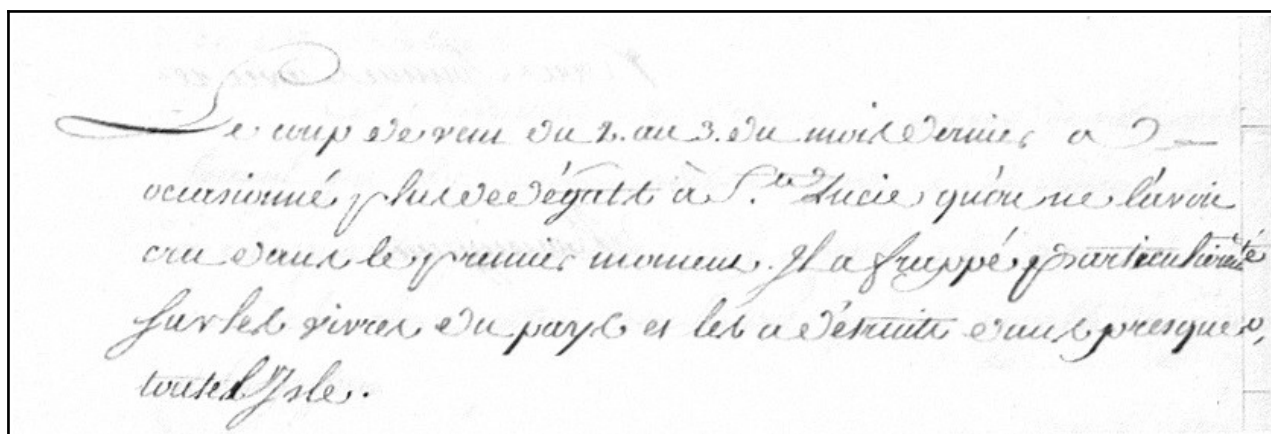 Le coup de vent du 2. au 3. du mois dernier a
occasionné plus de dégats à S.te Lucie qu'on ne l'avoit
cru dans le premier moment. Il a frappé particulièrem.té
sur les vivres du pays et les a détruits dans presque
toute l'Isle.